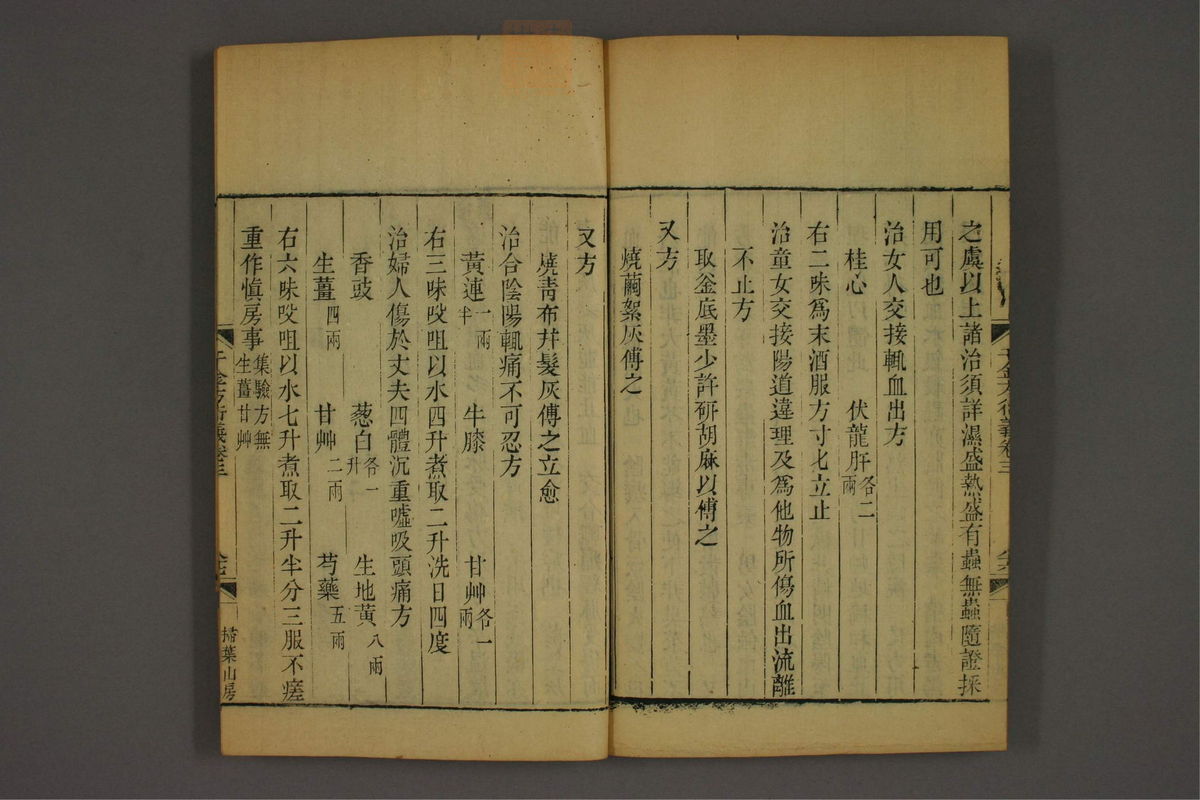 之虞以上諸治須詳濕盛熱盛有蟲無蟲隨證採
用可也
治女人交接輒血出方
桂心 伏龍肝各二兩
右二味為末酒服方寸匕立止
治童女交接陽道違理及為他物所傷血出流離
不止方
取釜底墨少許研胡麻以傅之
又方
燒繭絮灰傅之
又方
燒青布并髮灰傅之立愈
治合陰陽輒痛不可忍方
黃連一兩半 牛膝 甘艸各一兩
右三味㕮咀以水四升煮取二升洗日四度
治婦人傷於丈夫四體沉重噓吸頭痛方
香豉 葱白各一升 生地黃八兩
生薑四兩 甘艸二兩 芍藥五兩
右六味㕮咀以水七升煮取二升半分三服不瘥
重作慎房事集驗方無生薑甘艸
千金方衍義卷三
掃葉山房